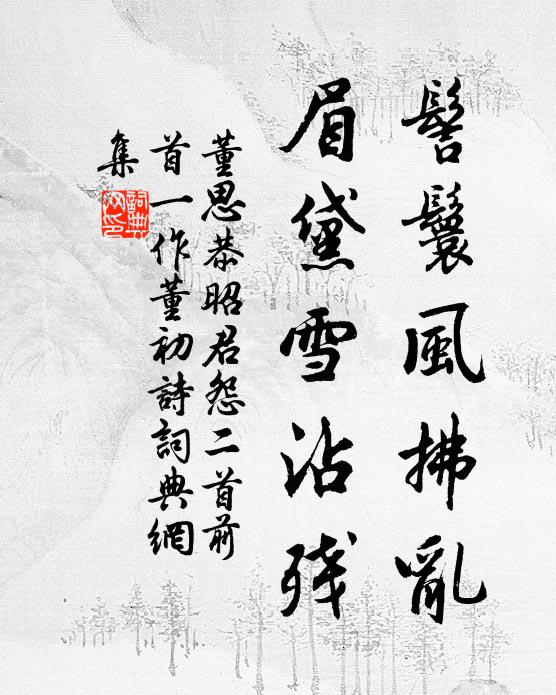 髻鬟風拂亂
眉黛雪沾殘
董思恭昭君怨二首前
首一作董初詩詞典網
集
詞典
网印